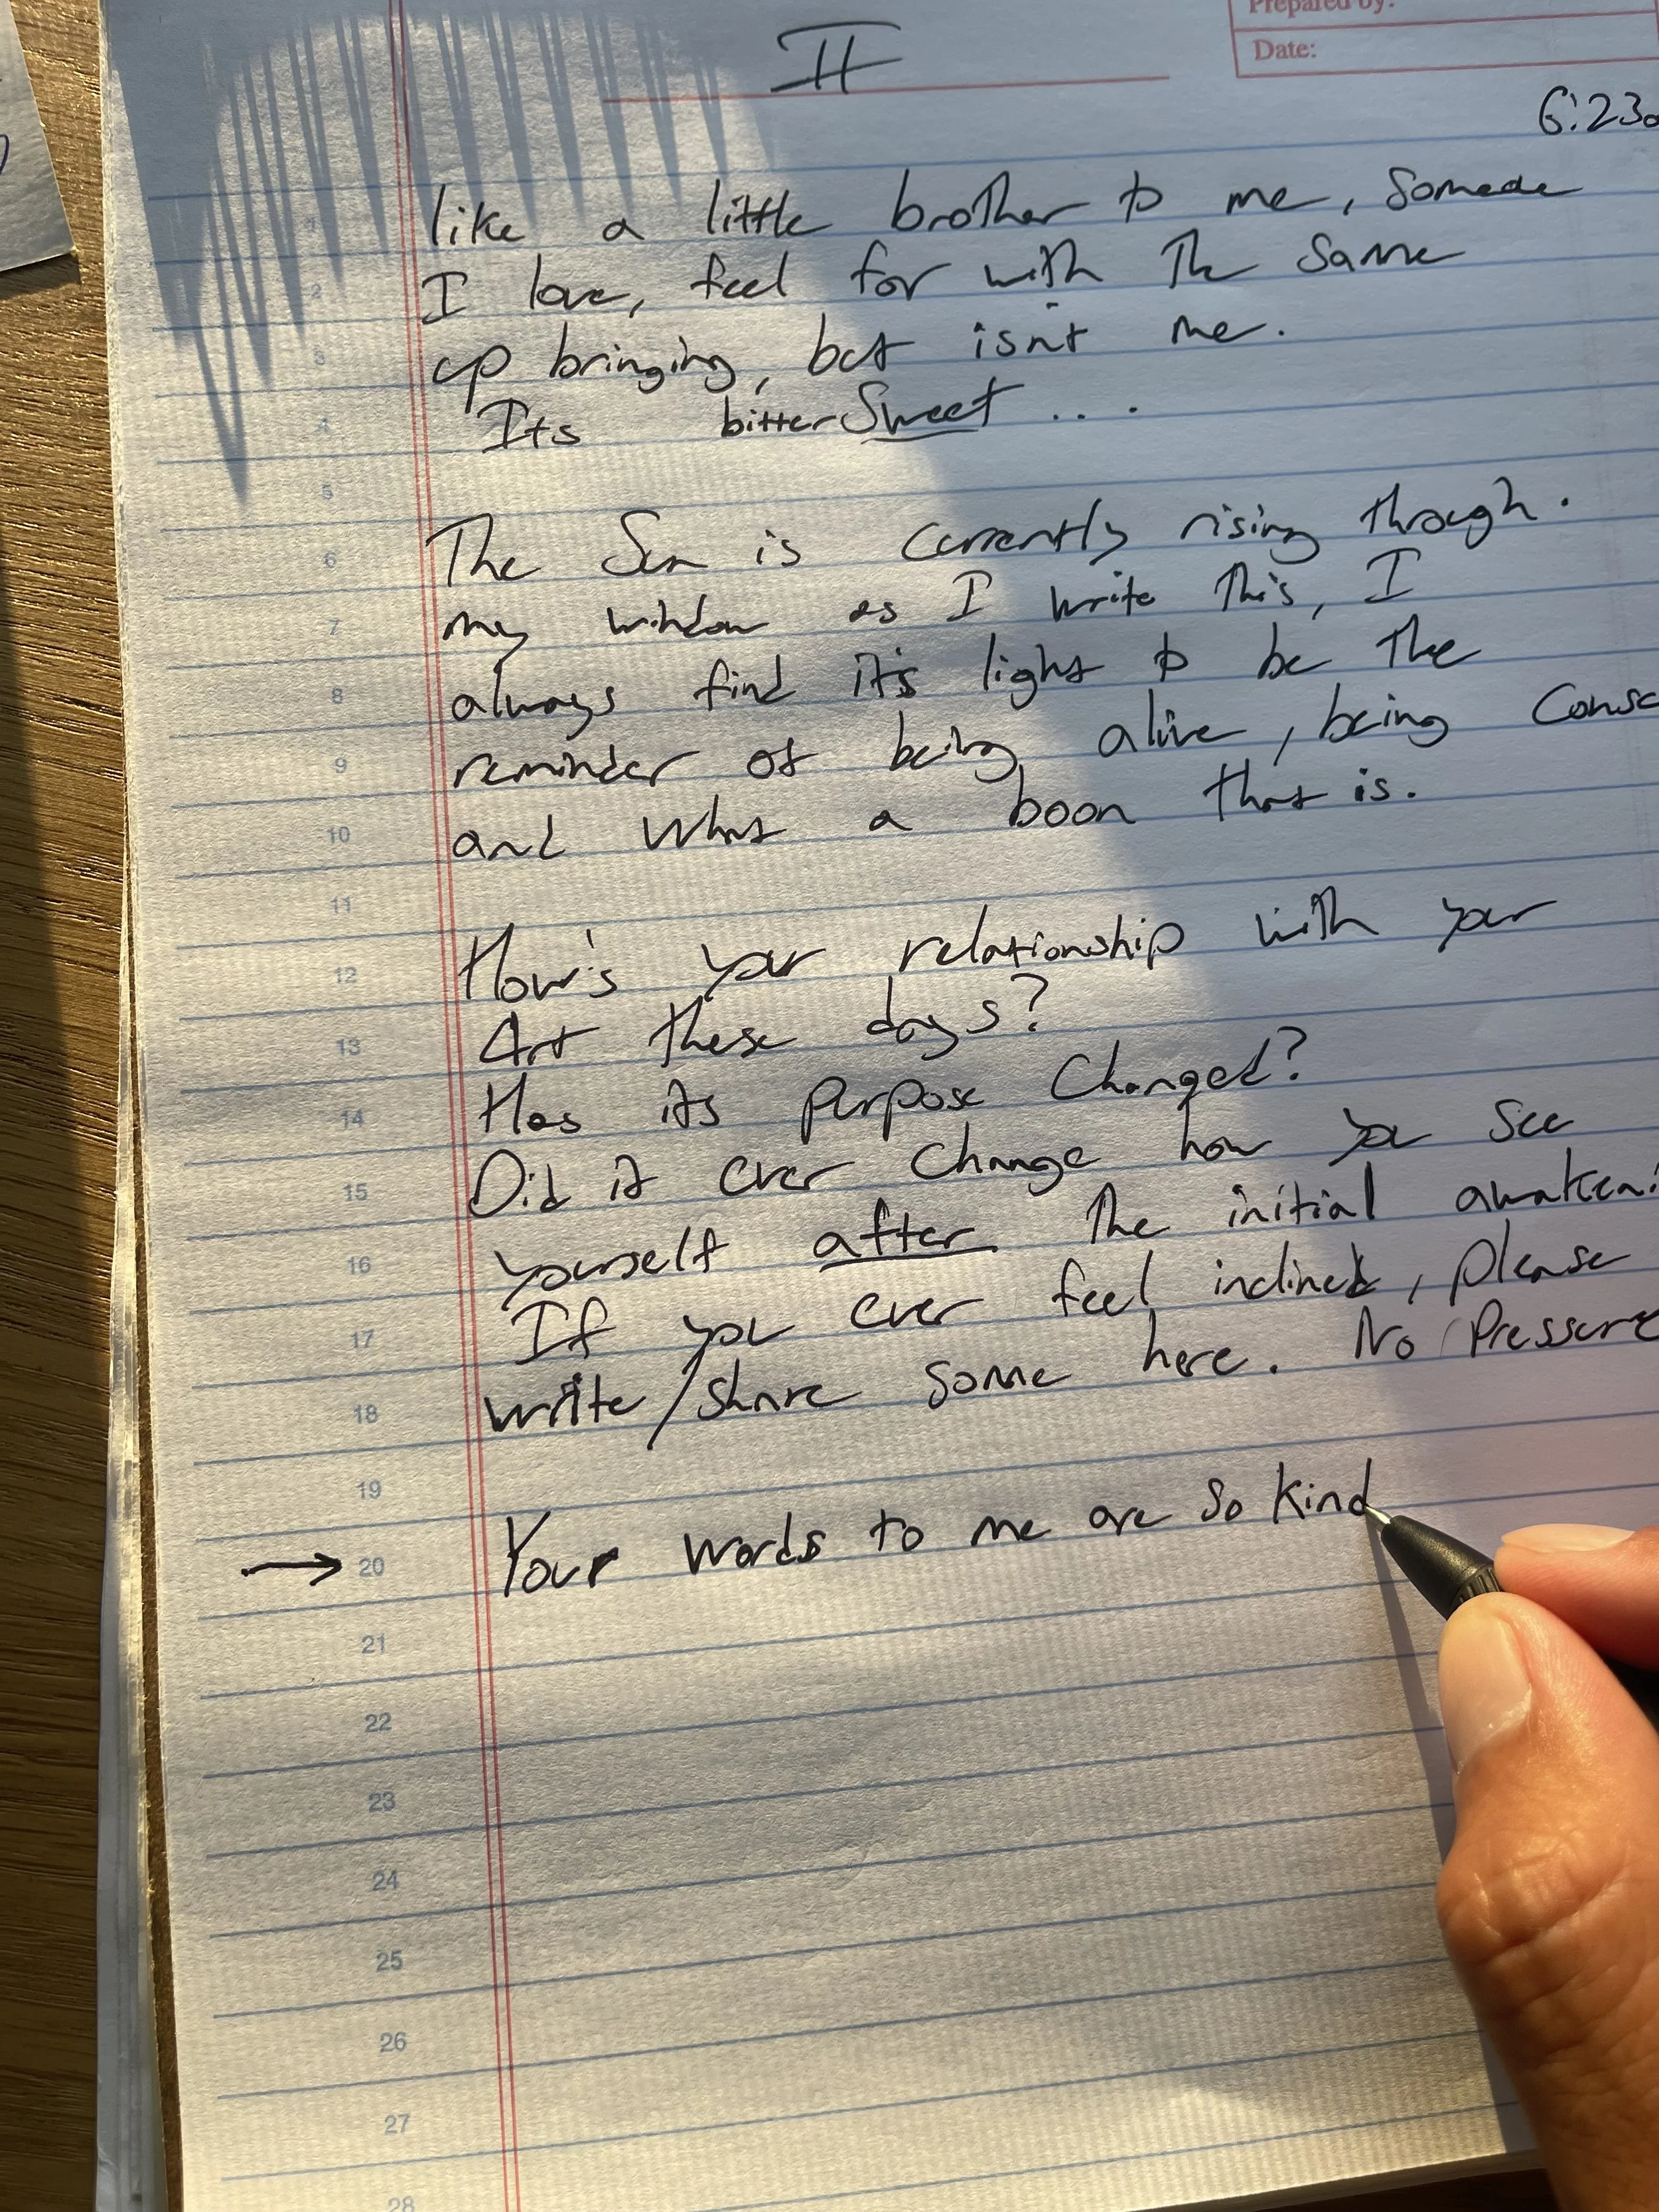 II
Prepared by:
Date:
6:23a
like a little brother to me, Someone
I love, feel for with the Same
up bringing, but isn't me.
Its bitterSweet ....
The Sun is currently rising through.
my window as I write this, I
always find it's light to be the
reminder of being alive, being Consc
and what a boon that is.
How's your relationship with your
Art these days?
Has its purpose Changed?
Did it ever change how you see
yourself after the initial awaken
If you ever feel inclined, please
write/share some here. No Pressure
Your words to me are so kind
1
2
3
4
5
6
7
8
9
10
11
12
13
14
15
16
17
18
19
20
21
22
23
24
25
26
27
28